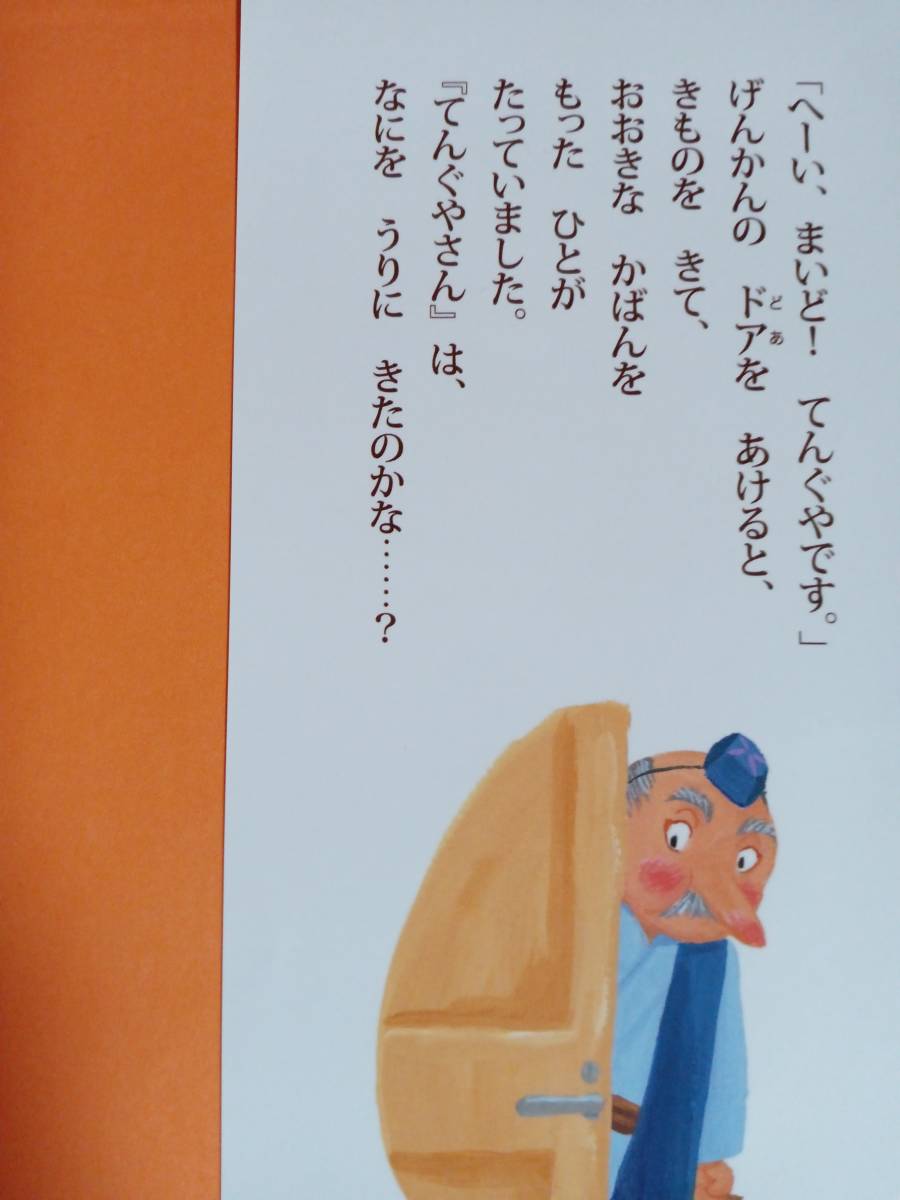 「へーい、まいど！　てんぐやです。」
げんかんの　ドアを　あけると、
どあ
きものを　きて、
おおきな　かばんを
もった　ひとが
たっていました。
『てんぐやさん』は、
なにを　うりに　きたのかな……？